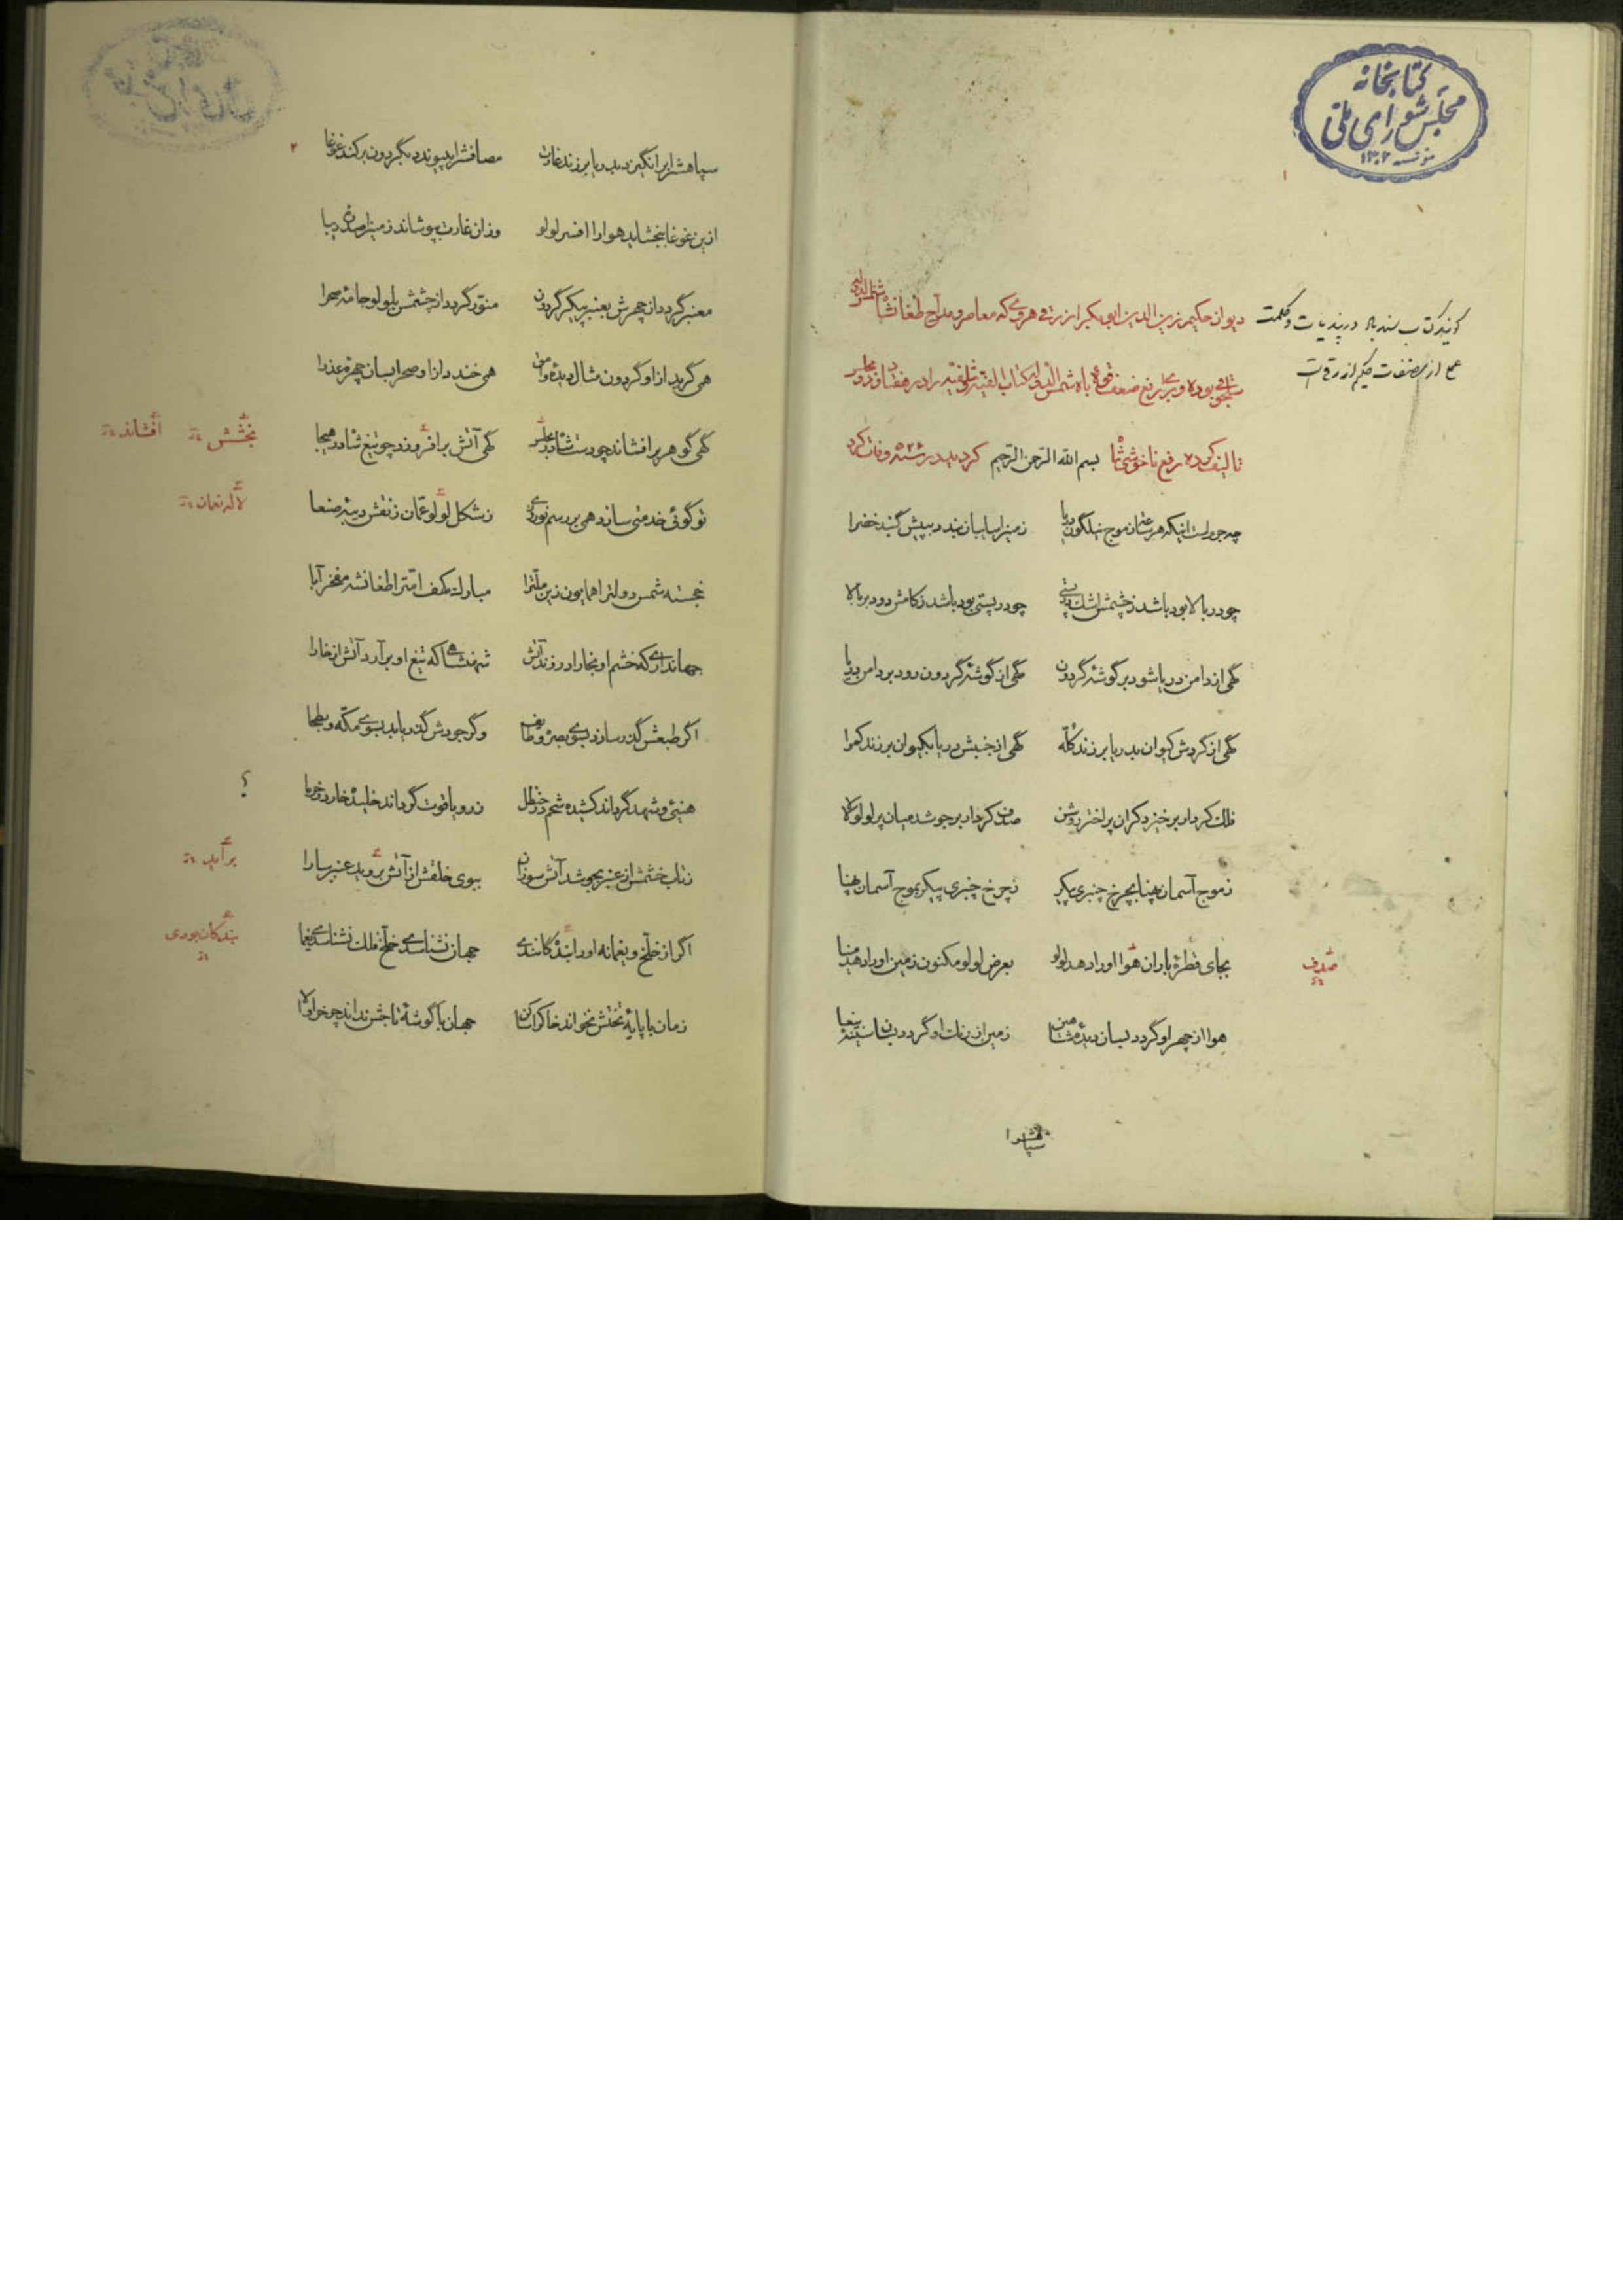 کتابخانه
مجلس شورای ملی
۱۳۰۲
۱
گویند کتاب سندباد در پندیات و حکمت
هم از مصنفات حکیم ازرقی است
دیوان حکیم زین الدین ابی بکر ازرقی هروی که معاصر و مداح طغانشاه
سلجوقی بوده و برای رفع ضعف قوه باه شمس الدوله کتاب الفیه شلفیه را در
تالیف کرده رفع ناخوشی شاه بسم الله الرحمن الرحیم کردید در سنه ۵۲۶ وفات کرد
چه جرمست اینکه هر ساعت ز موج نیلگون دریا زمین را سایبان بندد به پیش گنبد خضرا
چو در بالا بود باشد ز چشمش اشک در پستی چو در پستی بود باشد ز کامش دود بر بالا
گهی از دامن دریا شود بر گوشهٔ گردون گهی از گوشهٔ گردون رود بر دامن دریا
گهی از گردش کیوان بدریا برزند کله گهی از جنبش دریا بکیوان برزند کمرا
فلک کردار برخیزد کران پر اختر روشن صدف کردار برجوشد میان پر لولو لالا
ز موج آسمان پهنا بچرخ چنبری پیکر ز چرخ چنبری پیکر بموج آسمان پهنا
بجای قطرهٔ باران هوا او را دهد لولو بعرض لولو مکنون زمین او را دهد مینا
صدف
هوا از چهر او گردد بسان دیدهٔ شاهین زمین از رنگ او گردد بسان سینهٔ ببغا
سپاهش را
۲
سپاهش را برانگیزد بدریا برزند غارت مصافش را بپیوندد بگردون برکند غوغا
ازین غوغا ببخشاید هوا را افسر لولو وزان غارت بپوشاند زمین را صدرهٔ دیبا
معنبر گردد از چهرش بعنبر پیکر گردون منور گردد از چشمش بلولو جامهٔ صحرا
همی گرید ازاو گردون مثال دیدهٔ وامق همی خندد ازاو صحرا بسان چهرهٔ عذرا
گهی گوهر برافشاند چو دست شاه در مجلس گهی آتش برافروزد چو تیغ شاه در هیجا
بخشش
افشاند
تو گوئی خدمتی سازد همی بر رسم نوروزی ز شکل لولو عمان ز نقش دیبهٔ صنعا
لاله نعمان
خجسته شمس دولت را همایون زین ملت را مبارک کهف امت را طغانشه مفخر آبا
جهانداری که خشم او بخارا در زند آتش شهنشاهی که تیغ او برآرد آتش از خارا
اگر طبعش گذر سازد بسوی بصره و طایف وگر جودش گذر یابد بسوی مکه و بطحا
هنیئی و شهد گرداند کشیده شحم در حنظل زر و یاقوت گرداند خلیده خار در خرما
؟
ز تاب خشمش از عنبر بجوشد آتش سوزان ببوی خلقش از آتش بروید عنبر سارا
برآید
اگر از خلخ و یغما نه او را بندگانندی جهان نشناسدی خلخ فلک نشناسدی یغما
بندگان بودی
زمان با پایهٔ تختش نخواند خاک را ساکن جهان با گوشهٔ تاجش نداند چرخ را والا